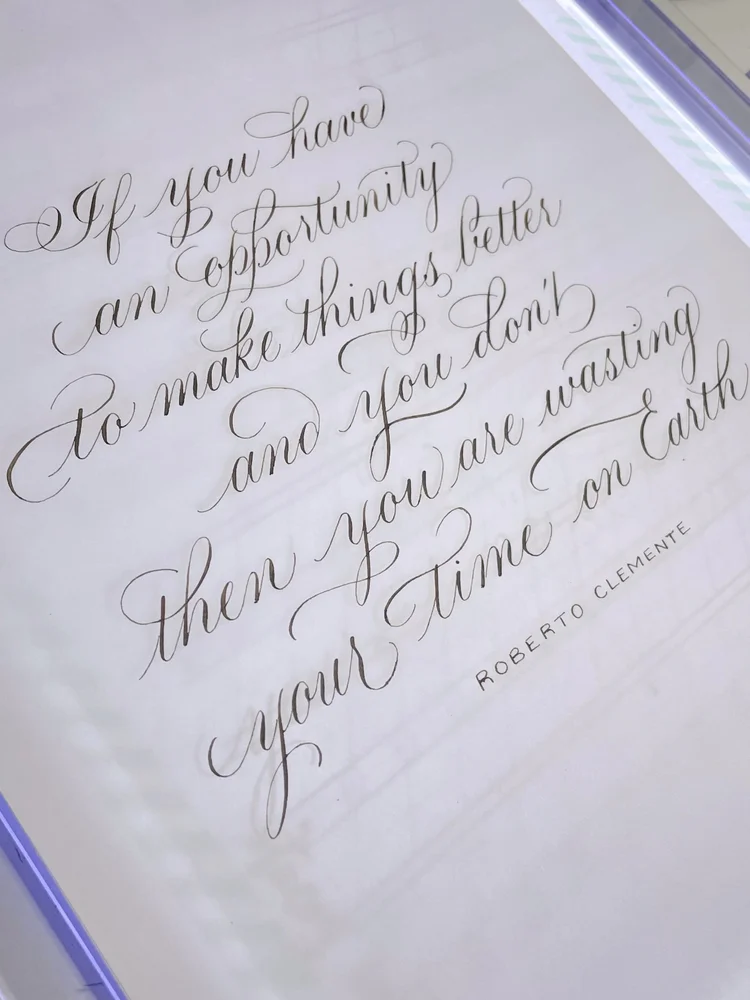 If you have
an opportunity
to make things better
and you don't
then you are wasting
your time on Earth
ROBERTO CLEMENTE